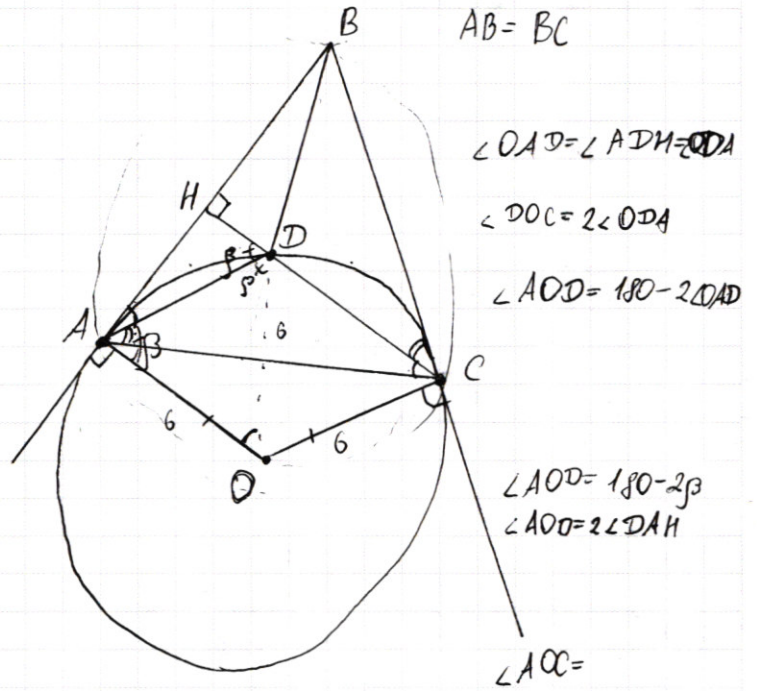 B
AB = BC
∠OAD = ∠ADH = ∠ODA
H
∠DOC = 2∠ODA
D
β
x
β
∠AOD = 180 - 2∠OAD
6
A
β
C
6
6
O
∠AOD = 180 - 2β
∠AOD = 2∠DAH
∠AOC =